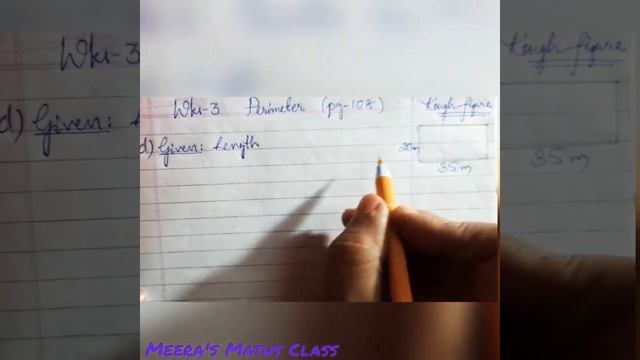 Wks-3 Perimeter (pg-108) Rough figure
d) Given: Length
20m
35m
MEERA'S MATHS CLASS